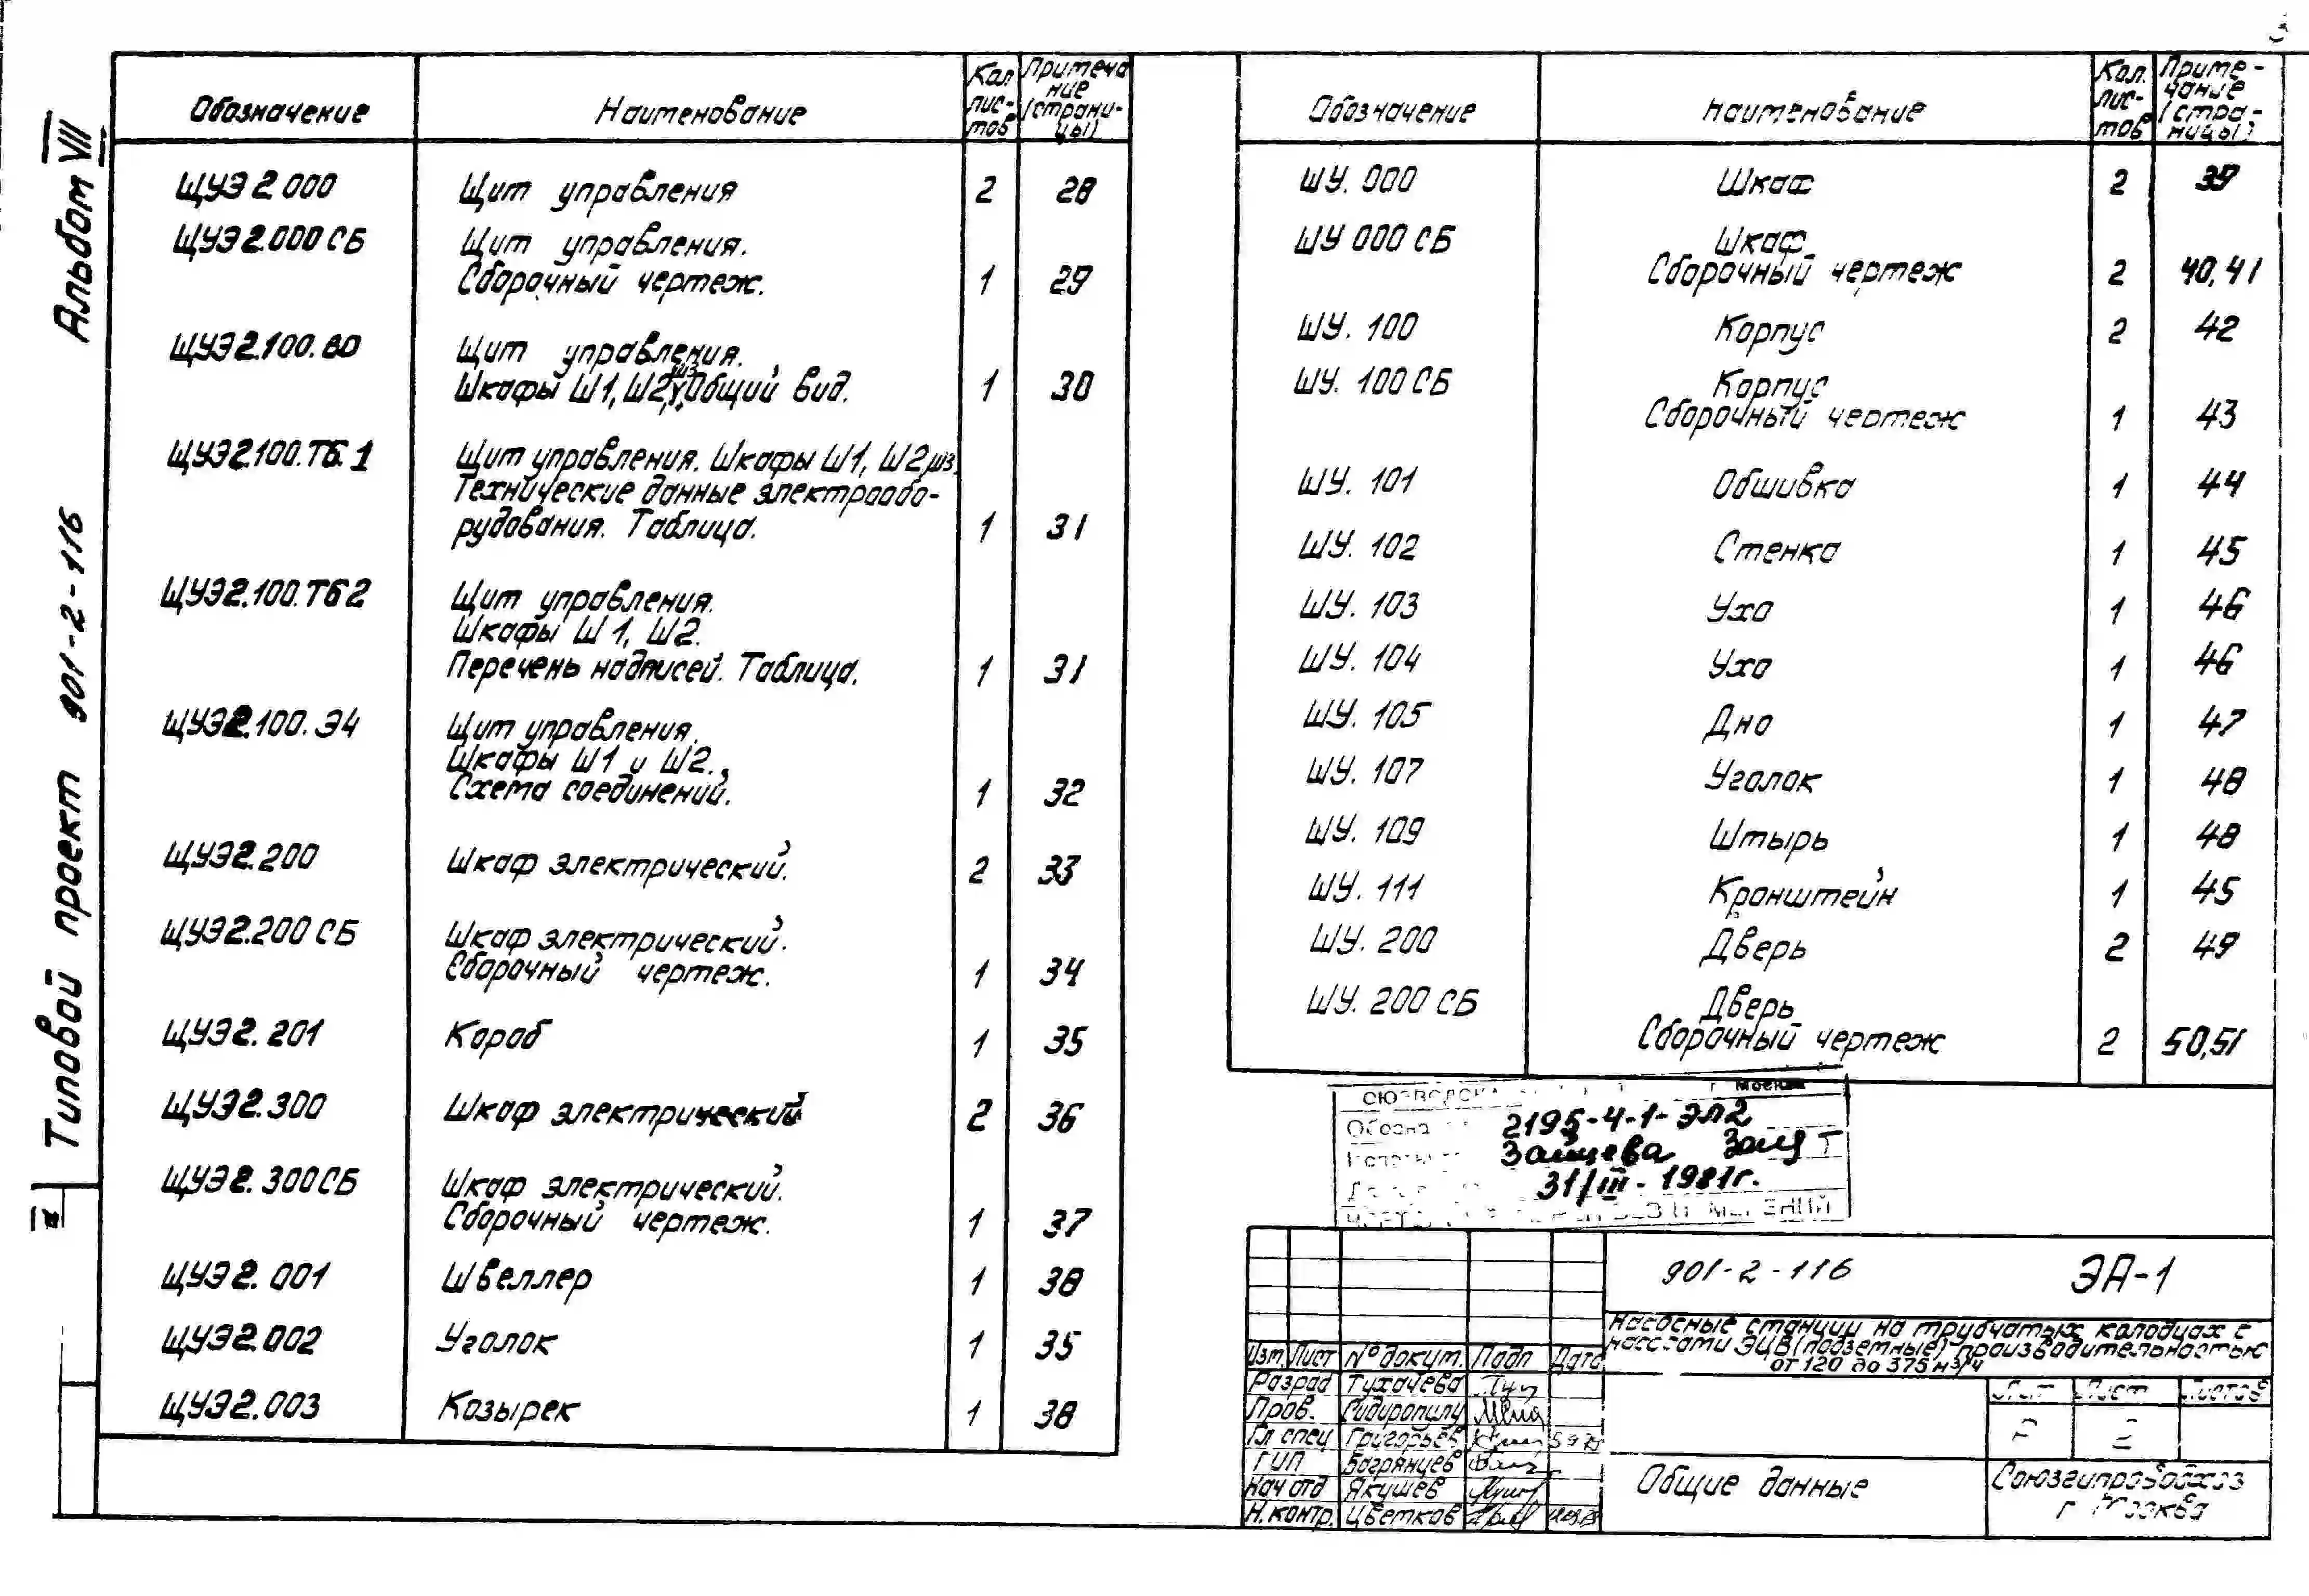 3
Альбом VII
Типовой проект 901-2-116
Обозначение
Наименование
Кол. лис-тов
Примеча ние (страни-цы)
ЩУЭ2.000 Щит управления 2 28
ЩУЭ2.000СБ Щит управления.
Сборочный чертеж. 1 29
ЩУЭ2.100.ВО Щит управления.
Шкафы Ш1, Ш2, Ш3. Общий вид. 1 30
ЩУЭ2.100.ТБ.1 Щит управления. Шкафы Ш1, Ш2, Ш3.
Технические данные электрообо-
рудования. Таблица. 1 31
ЩУЭ2.100.ТБ2 Щит управления.
Шкафы Ш1, Ш2.
Перечень надписей. Таблица. 1 31
ЩУЭ2.100.Э4 Щит управления.
Шкафы Ш1 и Ш2.
Схема соединений. 1 32
ЩУЭ2.200 Шкаф электрический. 2 33
ЩУЭ2.200СБ Шкаф электрический.
Сборочный чертеж. 1 34
ЩУЭ2.201 Короб 1 35
ЩУЭ2.300 Шкаф электрический 2 36
ЩУЭ2.300СБ Шкаф электрический.
Сборочный чертеж. 1 37
ЩУЭ2.001 Швеллер 1 38
ЩУЭ2.002 Уголок 1 35
ЩУЭ2.003 Козырек 1 38
Обозначение
Наименование
Кол. лис-тов
Приме-чание (стра-ницы)
ШУ.000 Шкаф 2 39
ШУ 000 СБ Шкаф
Сборочный чертеж 2 40,41
ШУ.100 Корпус 2 42
ШУ.100СБ Корпус
Сборочный чертеж 1 43
ШУ.101 Обшивка 1 44
ШУ.102 Стенка 1 45
ШУ.103 Ухо 1 46
ШУ.104 Ухо 1 46
ШУ.105 Дно 1 47
ШУ.107 Уголок 1 48
ШУ.109 Штырь 1 48
ШУ.111 Кронштейн 1 45
ШУ.200 Дверь 2 49
ШУ.200СБ Дверь
Сборочный чертеж 2 50,51
г. Москва
2195-4-1-ЭЛ2
Зайцева
31/III-1981г.
901-2-116 ЭА-1
Насосные станции на трубчатых колодцах с
насосами ЭЦВ (подземные) производительностью
от 120 до 375 м3/ч
Изм. Лист № докум. Подп Дата
Разраб Тухачева
Пров. Сидиропулу
Гл спец Григорьев
ГИП Багрянцев
Нач отд Якушев
Н.контр. Цветков
Лит Лист Листов
Р 2
Общие данные
Союзгипроводхоз
г Москва